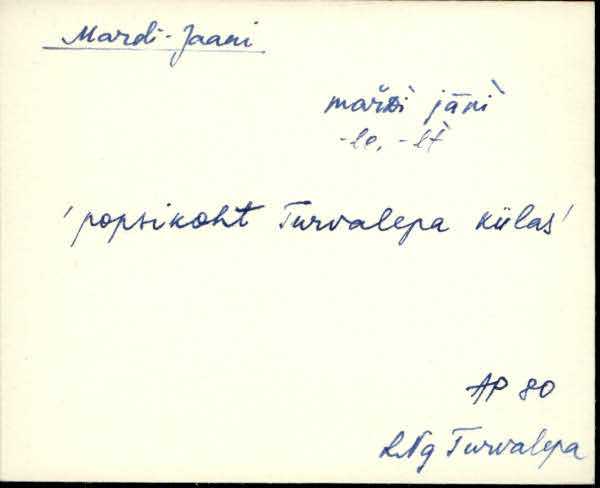 Mardi-Jaani
jāni
-le, -lt
'popsikoht Turvalepa külas'
AP 80
LNg Turvalepa